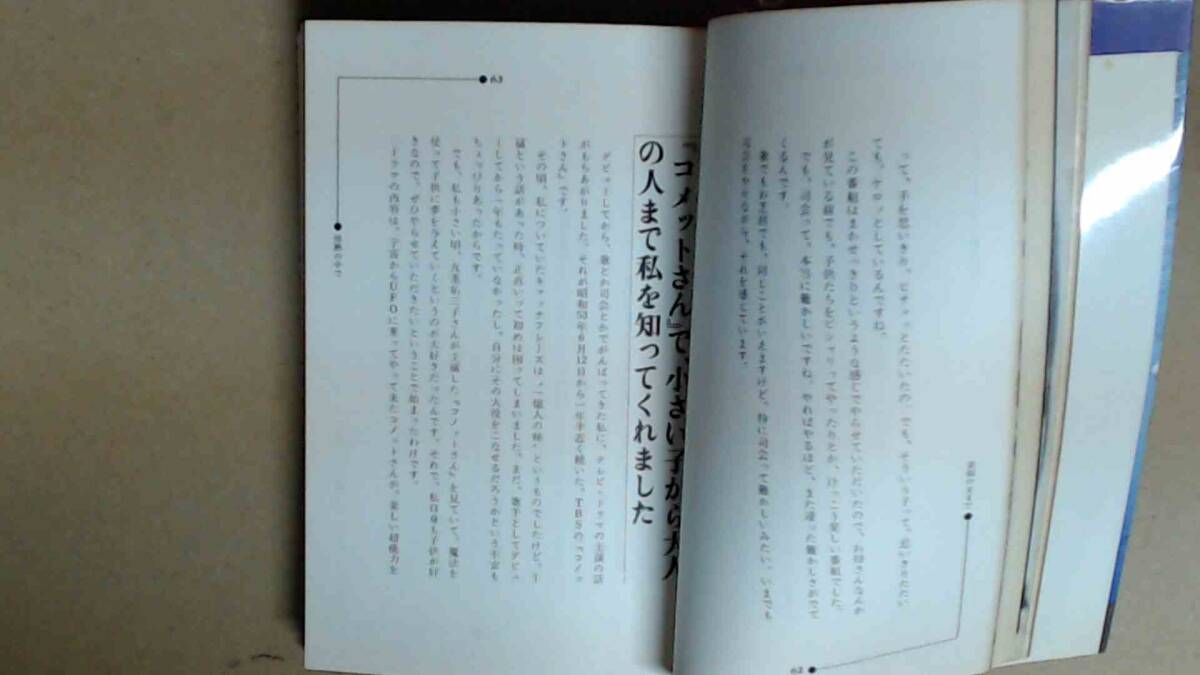 って、手を思いきり、ピチャッとたたいたの。でも、そういう子って、思いきりたたい
ても、ケロッとしているんですね。
この番組はまかせっきりというような感じでやらせていただいたので、お母さんなんか
が見ている前でも、子供たちをピシャリってやったりとか、けっこう楽しい番組でした。
でも、司会って、本当に難かしいですね。やればやるほど、また違った難かしさがでて
くるんです。
歌でもお芝居でも、同じことがいえますけど、特に司会って難かしいみたい。いまでも
司会をやりながら、それを感じています。
62
『コメットさん』で、小さい子から大人
の人まで私を知ってくれました
デビューしてから、歌とか司会とかでがんばってきた私に、テレビドラマの主演の話
がもちあがりました。それが昭和53年6月12日から一年半近く続いた、TBSの『コメッ
トさん』です。
その頃、私についていたキャッチフレーズは、“一億人の妹”というものでしたけど、主
演という話があった時、正直いって初めは困ってしまいました。まだ、歌手としてデビュ
ーしてから一年もたっていなかったし、自分にその大役をこなせるだろうかという不安も
ちょっぴりあったからです。
でも、私も小さい頃、九重佑三子さんが主演した『コメットさん』を見ていて、魔法を
使って子供に夢を与えていくというのが大好きだったんです。それで、私自身も子供が好
きなので、ぜひやらせていただきたいということで始まったわけです。
ドラマの内容は、宇宙からUFOに乗ってやって来たコメットさんが、楽しい超能力を
63